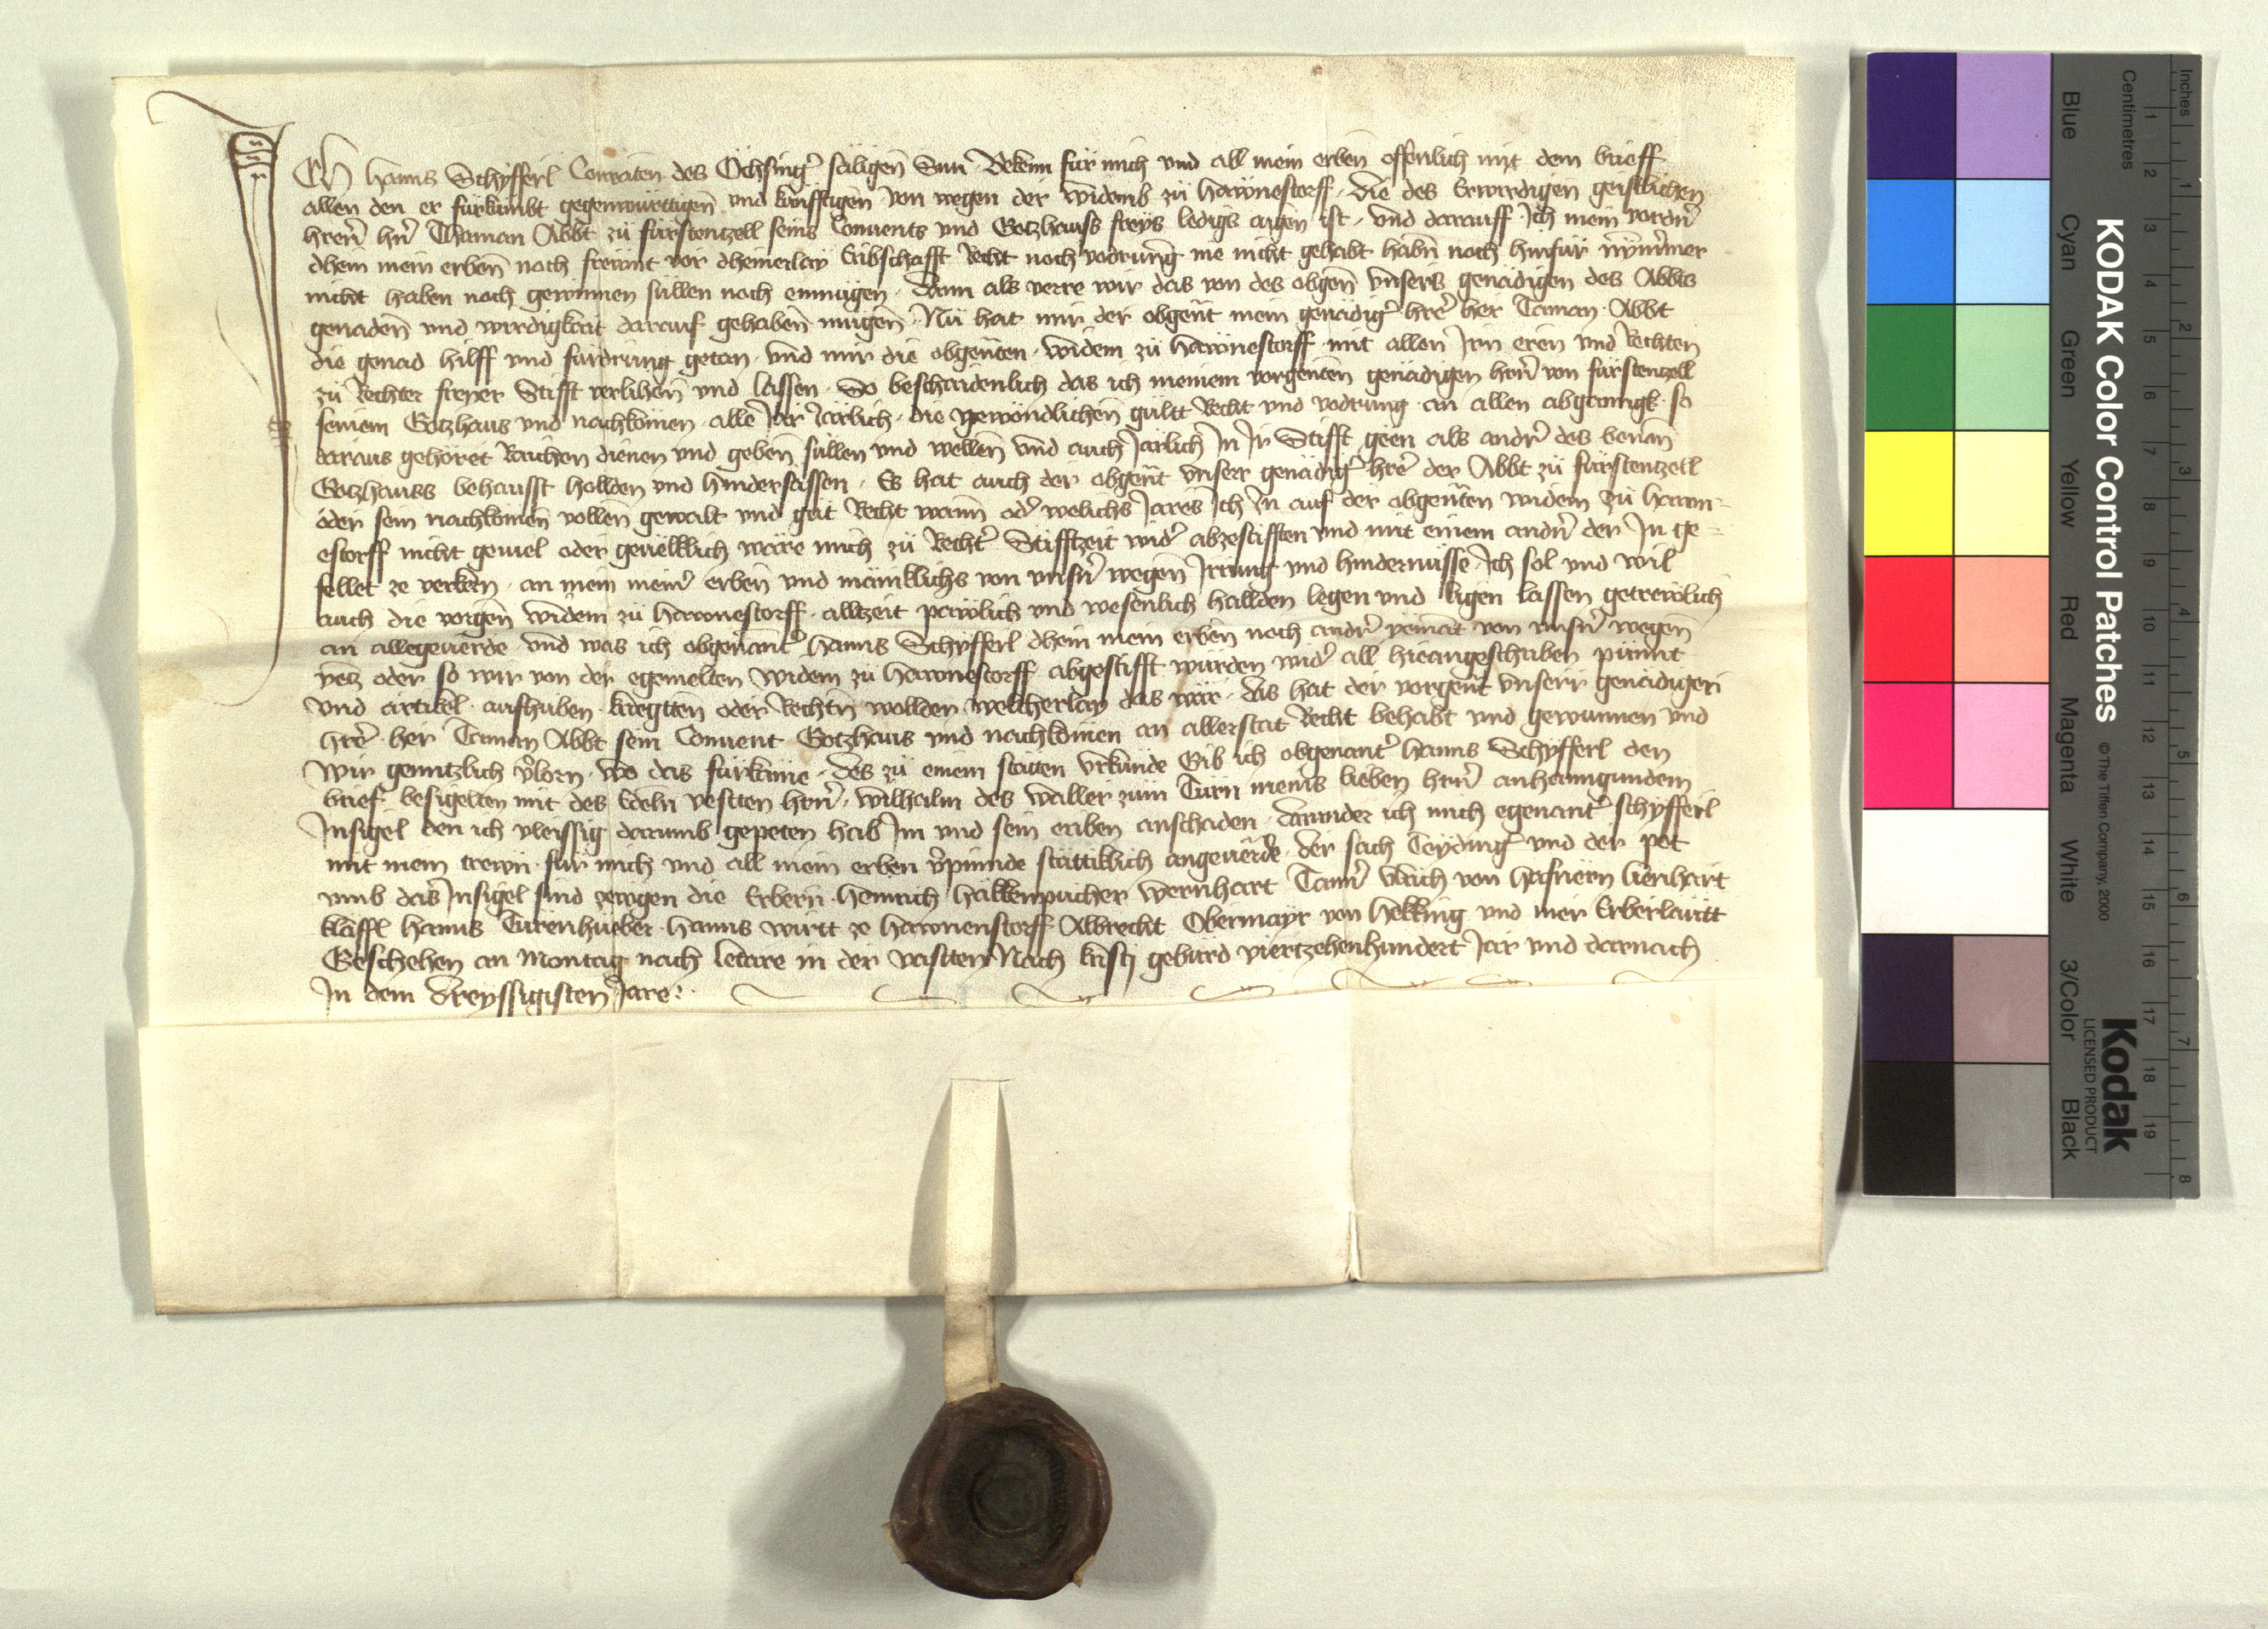 ICh Hanns Schyfferl Conraten des Öchsing̾ säligen̄ Sun Bekenn für mich vnd all mein erben offenlich mit dem brieff
allen den er fürkumbt gegenwürttigen̄ vnd künfftigen̄ von wegen der widemb zü Hawnestorff die des Erwirdigen geistlichen
hren̄ hn̄ Thaman Abbt zü fürstentzell seins Conuents vnd Gotzhauss freys ledigs aigen ist vnd darauff Ich mein vordn̄
dhem mein erben̄ noch frewnt vor dheinerlay Eribschafft Recht noch vodrung nie nicht gehabt habn̄ noch hinfür nymmer
nicht haben noch gewinnen süllen noch enmügen dann als verre wir das von des obgen̄ vnsers genädigen des Abbts
genaden̄ vnd wirdigkait darauf gehaben mügen Nü hat mir der obgen̄t mein genädig̾ hre̾ her Taman Abbt
die genad hilff vnd fürdrung getan vnd mir die obgen̄ten widem zü Hawnestorff mit allen Irn eren vnd Rechten
zü Rechter freyer Stifft verlihen̄ vnd lassen So beschaidenlich das ich meinem vorgen̄ten genädigen hrn̄ von fürstentzell
seinem Gotzhaus vnd nachkömen alle Jar Järlich die gewöndlichen̄ gültt Recht vnd vodrung an allen abganngk so
daraus gehöret Raichen dienen vnd geben̄ süllen vnd wellen̄ vnd auch Järlich In Ir Stifft geen als andr̄ des benan̄
Gotzhauss behausst hollden vnd hindersässen Es hat auch der obgen̄t vnserr genädig̾ hre̾ der Abbt zü fürstentzell
oder sein nachkomen̄ vollen̄ gewalt vnd gut Recht wann̄ od̾ welichs Jares Ich In auf der obgen̄ten widem zü Hawn-
estorff nicht geuiel oder geuëllich wäre mich zü Recht̾ Stifftzeit wid̾ abzestifften vnd mit einem andn̄ der In ge-
fellet ze verkern an mein mein̾ erben̄ vnd mäniklichs von vnsn̾ wegen̄ Irrung vnd hindernüsse Ich sol vnd wil
auch die vorgen̄ widem zü Hawnestorff allzeit pawlich vnd wesenlich hallden legen vnd ligen lassen getrewlich
an allegeuërde vnd was ich obgenant̾ Hanns Schyfferl dhein mein erben noch andr̾ yemāt von vnsn̾ wegen̄
yetz oder so wir von der egemelten widem zü Hawnestorff abgestifft würden wid̾ all hieangeschriben pünnt
vnd artikel aufhüben kriegtten oder Rechtn̄ wollden welcherlay das wär das hat der vorgen̄t vnserr genädiger
hre̾ her Taman Abbt sein Conuent Gotzhaus vnd nachkömen an allerstat Recht behabt vnd gewunnen vnd
wir genntzlich v̾lorn wo das fürkäme des zü einem stäten vrkünde Gib ich obgenant̾ Hanns Schyfferl den
brief besigelten mit des Edeln vesten hrn̾ wilhalm des waller zum Türn meins lieben hrn̾ anhanngundem
Insigel den ich vleissig darumb gepeten hab Im vnd sein eriben anschaden darunder ich mich egenant̾ schyfferl
mit mein trewn für mich vnd all mein erben v̾pinnde stättiklich angeuërde Der sach Teyding̾ vnd der pet
vmb das Insigel sind zewgen die Erbern Heinrich hälkenpucher Wernhart Tann̾ Vlrich von Hafnern lienhart
kläffl Hanns Türenhueber Hanns wirtt ze Hawnenstorff Albrecht Obermayr von Hekking vnd mer Erberlawtt
Geschehen an Montag nach letare in der vasten Nach kristj gebürd viertzehenhundert Jar vnd darnach
In dem dreyssigisten Jare
KODAK Color Control Patches © The Tiffen Company, 2000
Kodak
LICENSED PRODUCT
Inches 1 2 3 4 5 6 7 8
Centimetres 1 2 3 4 5 6 7 8 9 10 11 12 13 14 15 16 17 18 19
Blue Cyan Green Yellow Red Magenta White 3/Color Black